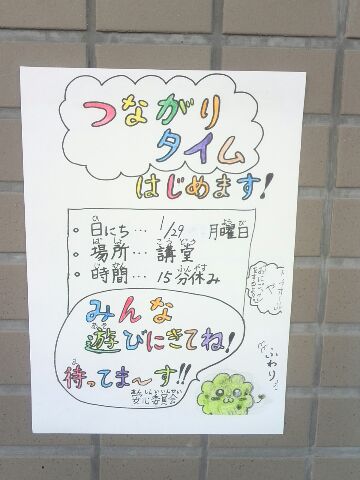 つながり
タイム
はじめます!
・日にち… 1/29 月曜日
・場所… 講堂
・時間… 15分休み
みんな
遊びにきてね!
待ってま〜す!!
安心委員会
ふわり